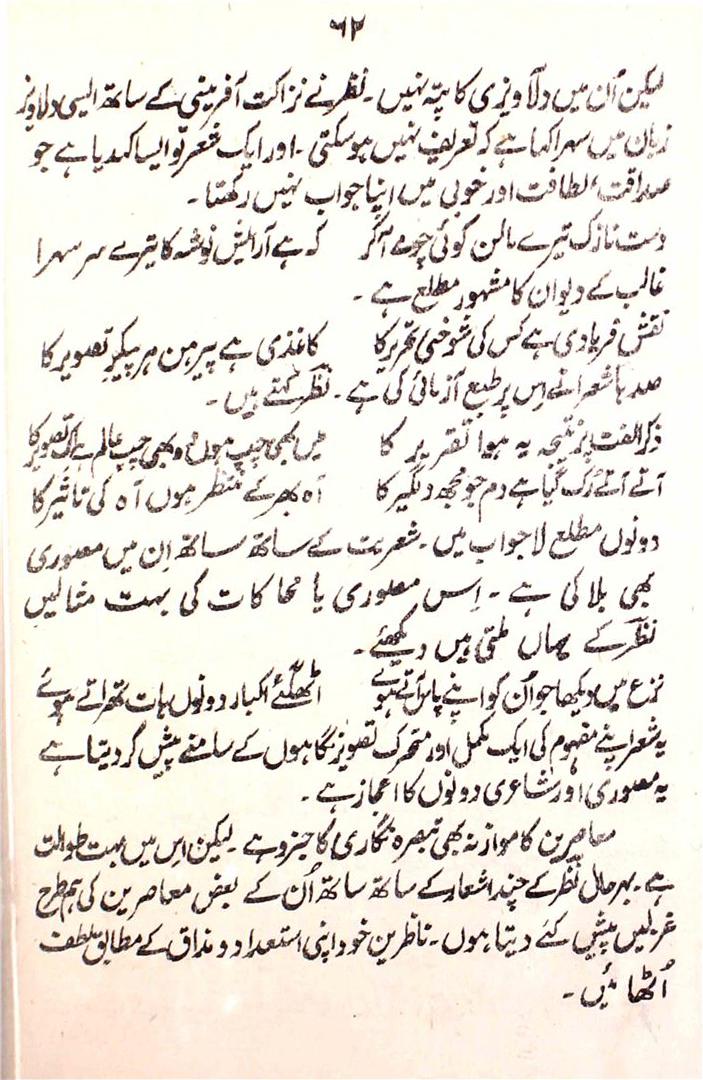 ۶۲
لیکن اُن میں دلآویزی کا پتہ نہیں۔ نظر نے نزاکت آفرینی کے ساتھ ایسی دلاویز
زبان میں سہرا کہا ہے کہ تعریف نہیں ہو سکتی۔ اور ایک شعر تو ایسا کہدیا ہے جو
صداقت، لطافت اور خوبی میں اپنا جواب نہیں رکھتا۔
دست نازک تیرے مالن کوئی چومے آکر کہ ہے آرائش نوشہ کا تیرے سر سہرا
غالب کے دیوان کا مشہور مطلع ہے۔
نقش فریادی ہے کس کی شوخیٔ تحریر کا کاغذی ہے پیرہن ہر پیکرِ تصویر کا
صدہا شعرا نے اِس پر طبع آزمائی کی ہے۔ نظر کہتے ہیں۔
ذکر الفت پر نتیجہ یہ ہوا تقریر کا میں بھی چپ ہوں وہ بھی چپ عالم ہے اک تصویر کا
آتے آتے رُک گیا ہے دم جو مجھ دلگیر کا آہ بھر کے منتظر ہوں آہ کی تاثیر کا
دونوں مطلع لاجواب ہیں۔ شعریت کے ساتھ ساتھ اِن میں مصوری
بھی بلا کی ہے۔ اِس مصوری یا محاکات کی بہت مثالیں
نظر کے یہاں ملتی ہیں دیکھئے۔
نزع میں دیکھا جو اُن کو اپنے پاس آتے ہوئے اٹھ گئے اکبار دونوں ہات تھراتے ہوئے
یہ شعر اپنے مفہوم کی ایک مکمل اور متحرک تصویر نگاہوں کے سامنے پیش کر دیتا ہے
یہ مصوری اور شاعری دونوں کا اعجاز ہے۔
معاصرین کا موازنہ بھی تبصرہ نگاری کا جزو ہے۔ لیکن اِس میں بہت طوالت
ہے۔ بہرحال نظر کے چند اشعار کے ساتھ ساتھ اُن کے بعض معاصرین کی ہم طرح
غزلیں پیش کئے دیتا ہوں۔ ناظرین خود اپنی استعداد و مذاق کے مطابق لطف
اُٹھائیں۔